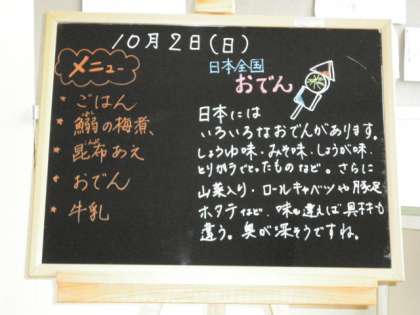 10月2日(日)
メニュー
* ごはん
* 鰯の梅煮、
* 昆布あえ
* おでん
* 牛乳
日本全国
おでん
日本には
いろいろなおでんがあります。
しょうゆ味・みそ味・しょうが味・
とりガラでとったものなど。さらに
山菜入り・ロールキャベツや豚足
ホタテなど、味も違えば具材も
違う。奥が深そうですね。